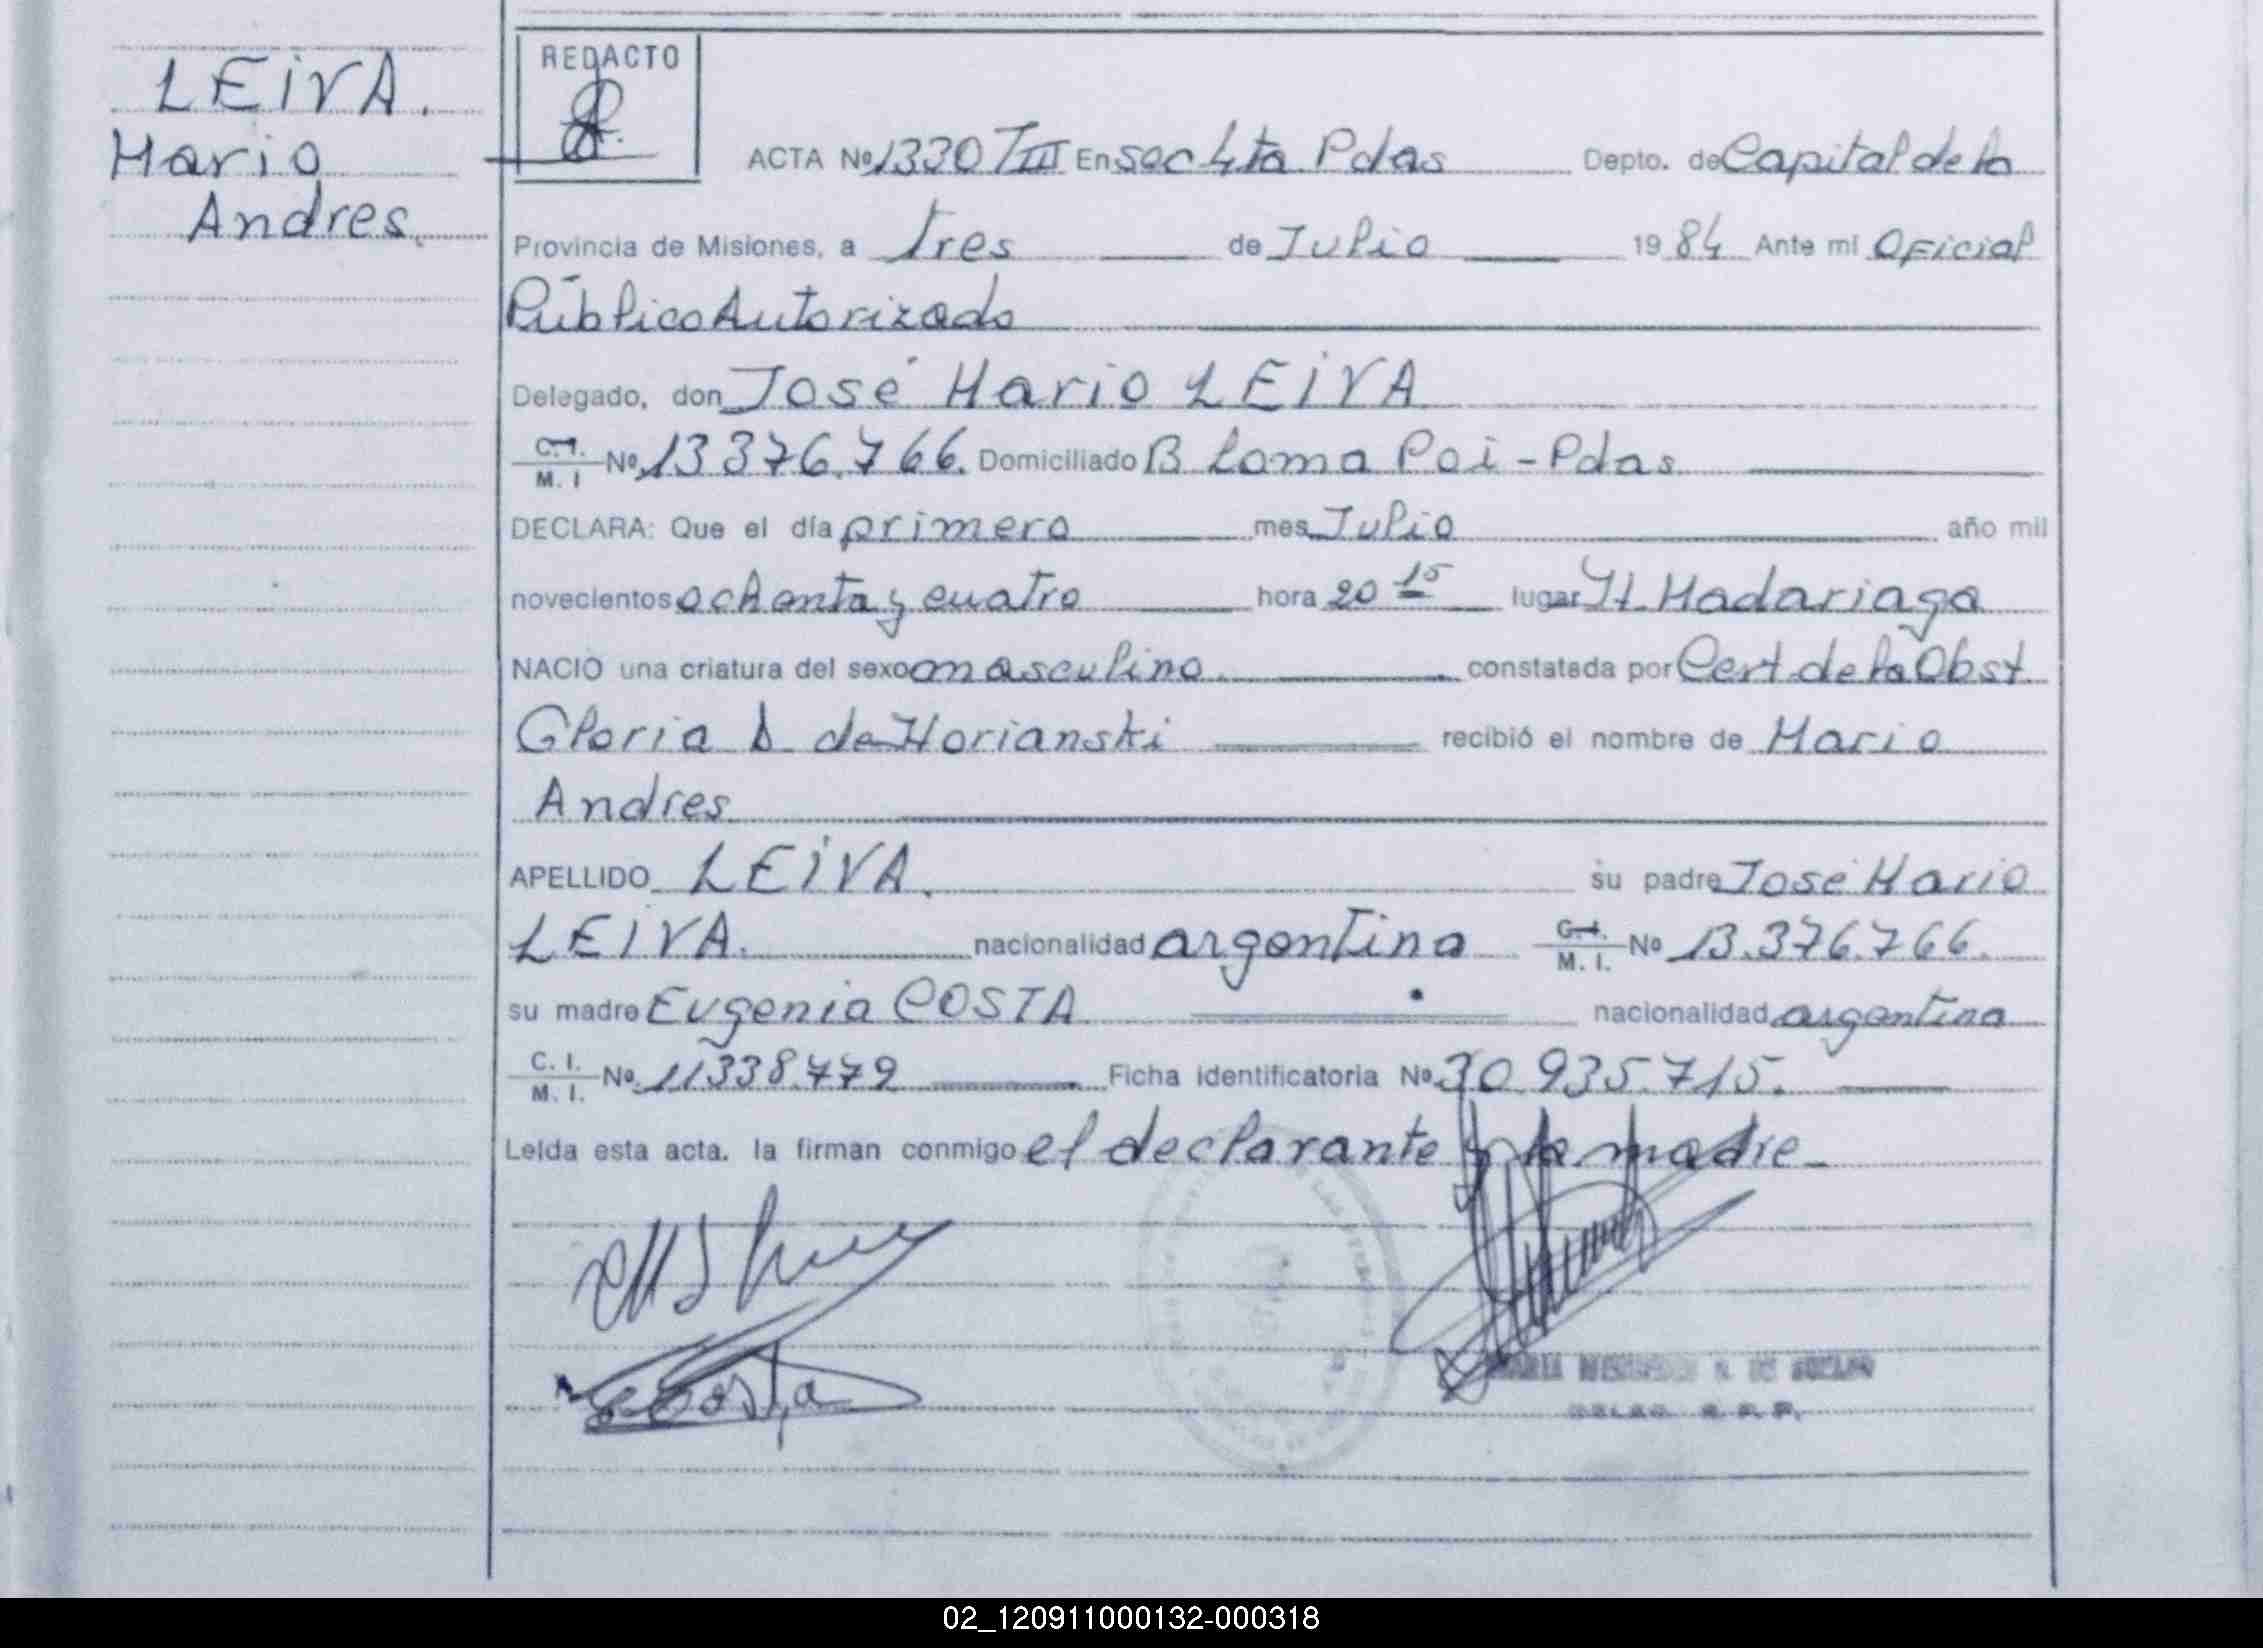 LEIVA.
Mario
Andres.
REDACTO
ACTA Nº 1330 TIII En Sec 4ta Pdas Depto. de Capital de la
Provincia de Misiones, a tres de Julio 1984 Ante mí Oficial
Público Autorizado
Delegado, don José Mario LEIVA
C.I. M. I Nº 13376.766. Domiciliado B Loma Poi - Pdas
DECLARA: Que el día primero mes Julio año mil
novecientos ochenta y cuatro hora 20 15 lugar H. Madariaga
NACIO una criatura del sexo masculino constatada por Cert. de la Obst
Gloria D de Horianski recibió el nombre de Mario
Andres
APELLIDO LEIVA. su padre José Mario
LEIVA. nacionalidad argentina C.I. M. I. Nº 13.376.766.
su madre Eugenia COSTA nacionalidad argentina
C. I. M. I. Nº 11338.779 Ficha identificatoria Nº 30 935.715.
Leída esta acta. la firman conmigo el declarante y la madre
Costa
02_120911000132-000318